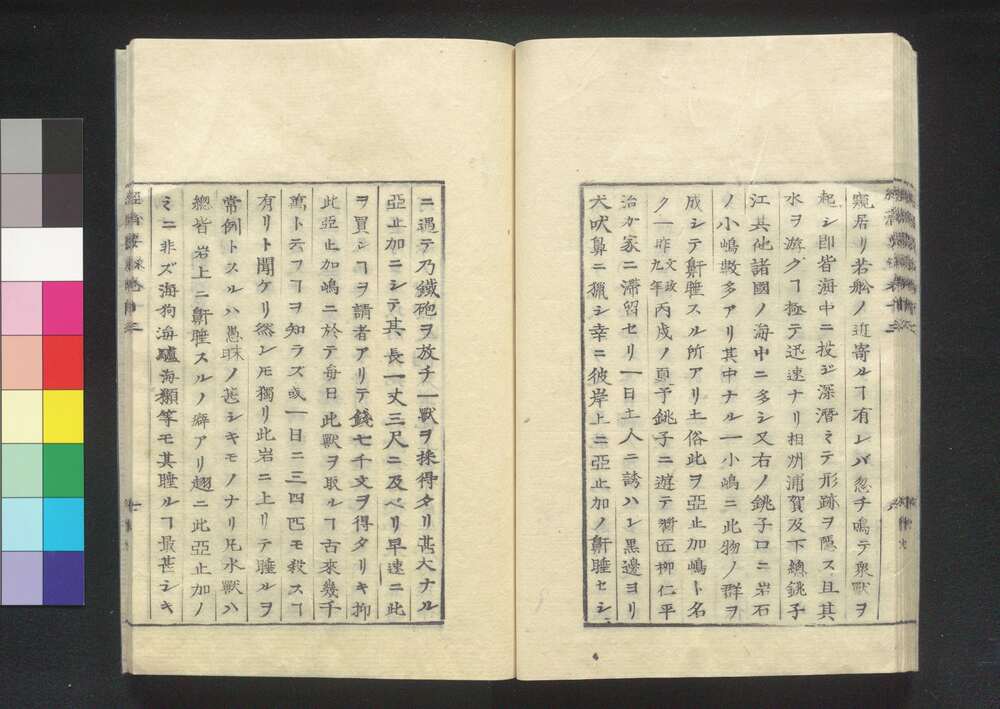 窺居リ若舩ノ近寄ルヿ有レバ忽チ鳴テ衆獸ヲ
起シ卽皆海中ニ投ジ深潛ミテ形跡ヲ隱ス且其
水ヲ游グヿ極テ迅速ナリ相州浦賀及下總銚子
江其他諸國ノ海中ニ多シ又右ノ銚子口ニ岩石
ノ小嶋數多アリ其中ナル一小嶋ニ此物ノ群ヲ
成シテ鼾睡スル所アリ土俗此ヲ亞止加嶋ト名
ク一昨文政九年丙戌ノ夏予銚子ニ遊テ醫匠柳仁平
治ガ家ニ滯留セリ一日土人ニ誘ハレ黒邊ヨリ
犬吠鼻ニ獵シ幸ニ彼岸上ニ亞止加ノ鼾睡セシ
ニ遇テ乃鐵砲ヲ放チ一獸ヲ採得タリ甚大ナル
亞止加ニシテ其長一丈三尺ニ及ベリ早速ニ此
ヲ買シヿヲ請者アリテ錢七千文ヲ得タリキ抑
此亞止加嶋ニ於テ每日此獸ヲ取ルヿ古來幾千
萬ト云フヿヲ知ラズ或一日ニ三四匹モ殺スヿ
有リト聞ケリ然レ𪜈獨リ此岩ニ上リテ睡ルヲ
常例トスルハ愚昧ノ甚シキモノナリ凡水獸ハ
總皆岩上ニ鼾睡スルノ癖アリ翅ニ此亞止加ノ
ミニ非ズ海狗海驢海獺等モ其睡ルヿ最甚シキ